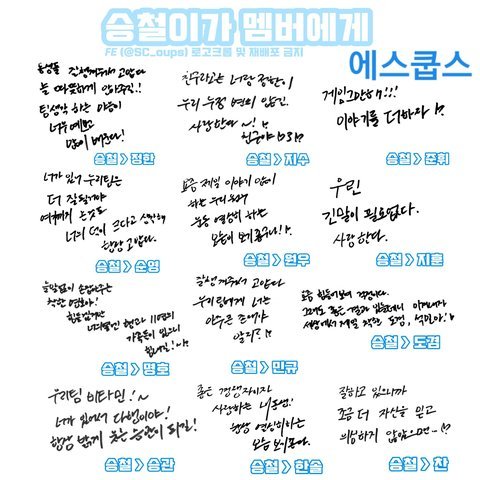 승철이가 멤버에게
FE (@SC_oups) 로고크롭 및 재배포 금지
에스쿱스
동생들 잘 챙겨줘서 고맙다
늘 따뜻하게 안아주지!
팀생각 하는 마음이
너무 예쁘고
많이 배운다!
승철 > 정한
친구라고는 너랑 정한이
우리 우정 변치 않길
사랑한다~!
승철 > 지수
게임 그만해!!!
이야기를 더하자!?
승철 > 준휘
너가 있어 우리팀은
더 잘될거야
여기까지 온것도
너의 덕이 크다고 생각해
항상 고맙다.
승철 > 순영
요즘 제일 이야기 많이
하는 우리 원우
운동 열심히 하는
모습이 보기 좋구나!?
승철 > 원우
우린
긴말이 필요없다.
사랑한다.
승철 > 지훈
착한 명호야!
힘든일있거든
너의 옆엔 형과 11명의
가족들이 있으니
승철 > 명호
잘 챙겨줘서 고맙다
우리팀에게 너는
아주 큰 존재야
알지?!?
승철 > 민규
요즘 힘들기보여 걱정이다.
그래도 좋은 결과 있을테니 이겨내자
세상에서 제일 착한 도겸, 석민아!
승철 > 도겸
우리팀 비타민!~
너가 있어서 다행이야!
항상 밝게 웃는 승관이 되길!
승철 > 승관
좋은 경쟁자이자
사랑하는 내동생!
항상 열심히하는
모습 보기좋아.
승철 > 한솔
잘하고 있으니까
조금 더 자신을 믿고
의심하지 않았으면…!?
승철 > 찬